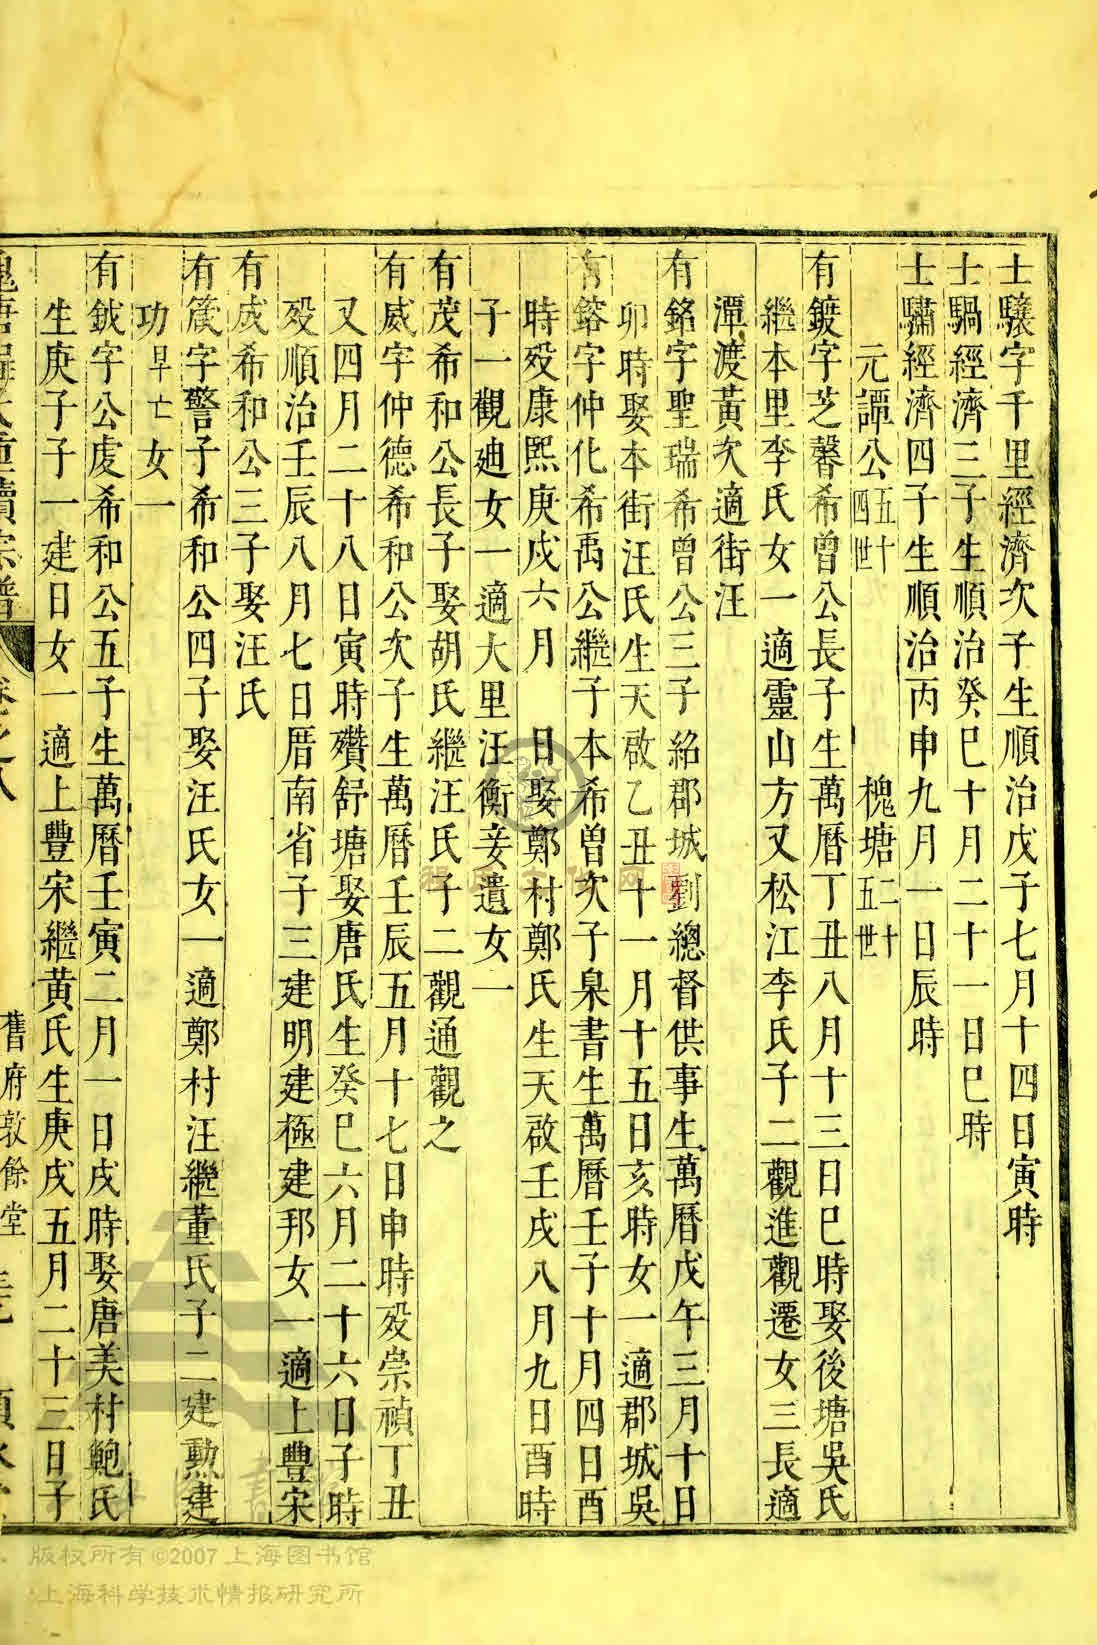 士驤字千里經濟次子生順治戊子七月十四日寅時
士騧經濟三子生順治癸巳十月二十一日巳時
士驌經濟四子生順治丙申九月一日辰時
元譚公五十四世 槐塘二十五世
有鍍字芝馨希曾公長子生萬曆丁丑八月十三日巳時娶後塘吳氏
繼本里李氏女一適靈山方又松江李氏子二觀進觀遷女三長適
潭渡黃次適街汪
有銘字聖瑞希曾公三子紹郡城劉總督供事生萬曆戊午三月十日
卯時娶本街汪氏生天啟乙丑十一月十五日亥時女一適郡城吳
有鎔字仲化希禹公繼子本希曾次子臬書生萬曆壬子十月四日酉
時歿康熙庚戌六月 日娶鄭村鄭氏生天啟壬戌八月九日酉時
子一觀迪女一適大里汪衡妾遺女一
有茂希和公長子娶胡氏繼汪氏子二觀通觀之
有威字仲德希和公次子生萬曆壬辰五月十七日申時歿崇禎丁丑
又四月二十八日寅時殯舒塘娶唐氏生癸巳六月二十六日子時
歿順治壬辰八月七日厝南省子三建明建極建邦女一適上豐宋
有成希和公三子娶汪氏
有箴字警子希和公四子娶汪氏女一適鄭村汪繼董氏子二建勲建
功早亡女一
有鉞字公虔希和公五子生萬曆壬寅二月一日戌時娶唐美村鮑氏
生庚子子一建日女一適上豐宋繼黃氏生庚戌五月二十三日子
槐塘程氏重續宗譜 卷之八 舊府敦餘堂
程氏文化网
版权所有©2007上海图书馆
上海科学技术情报研究所